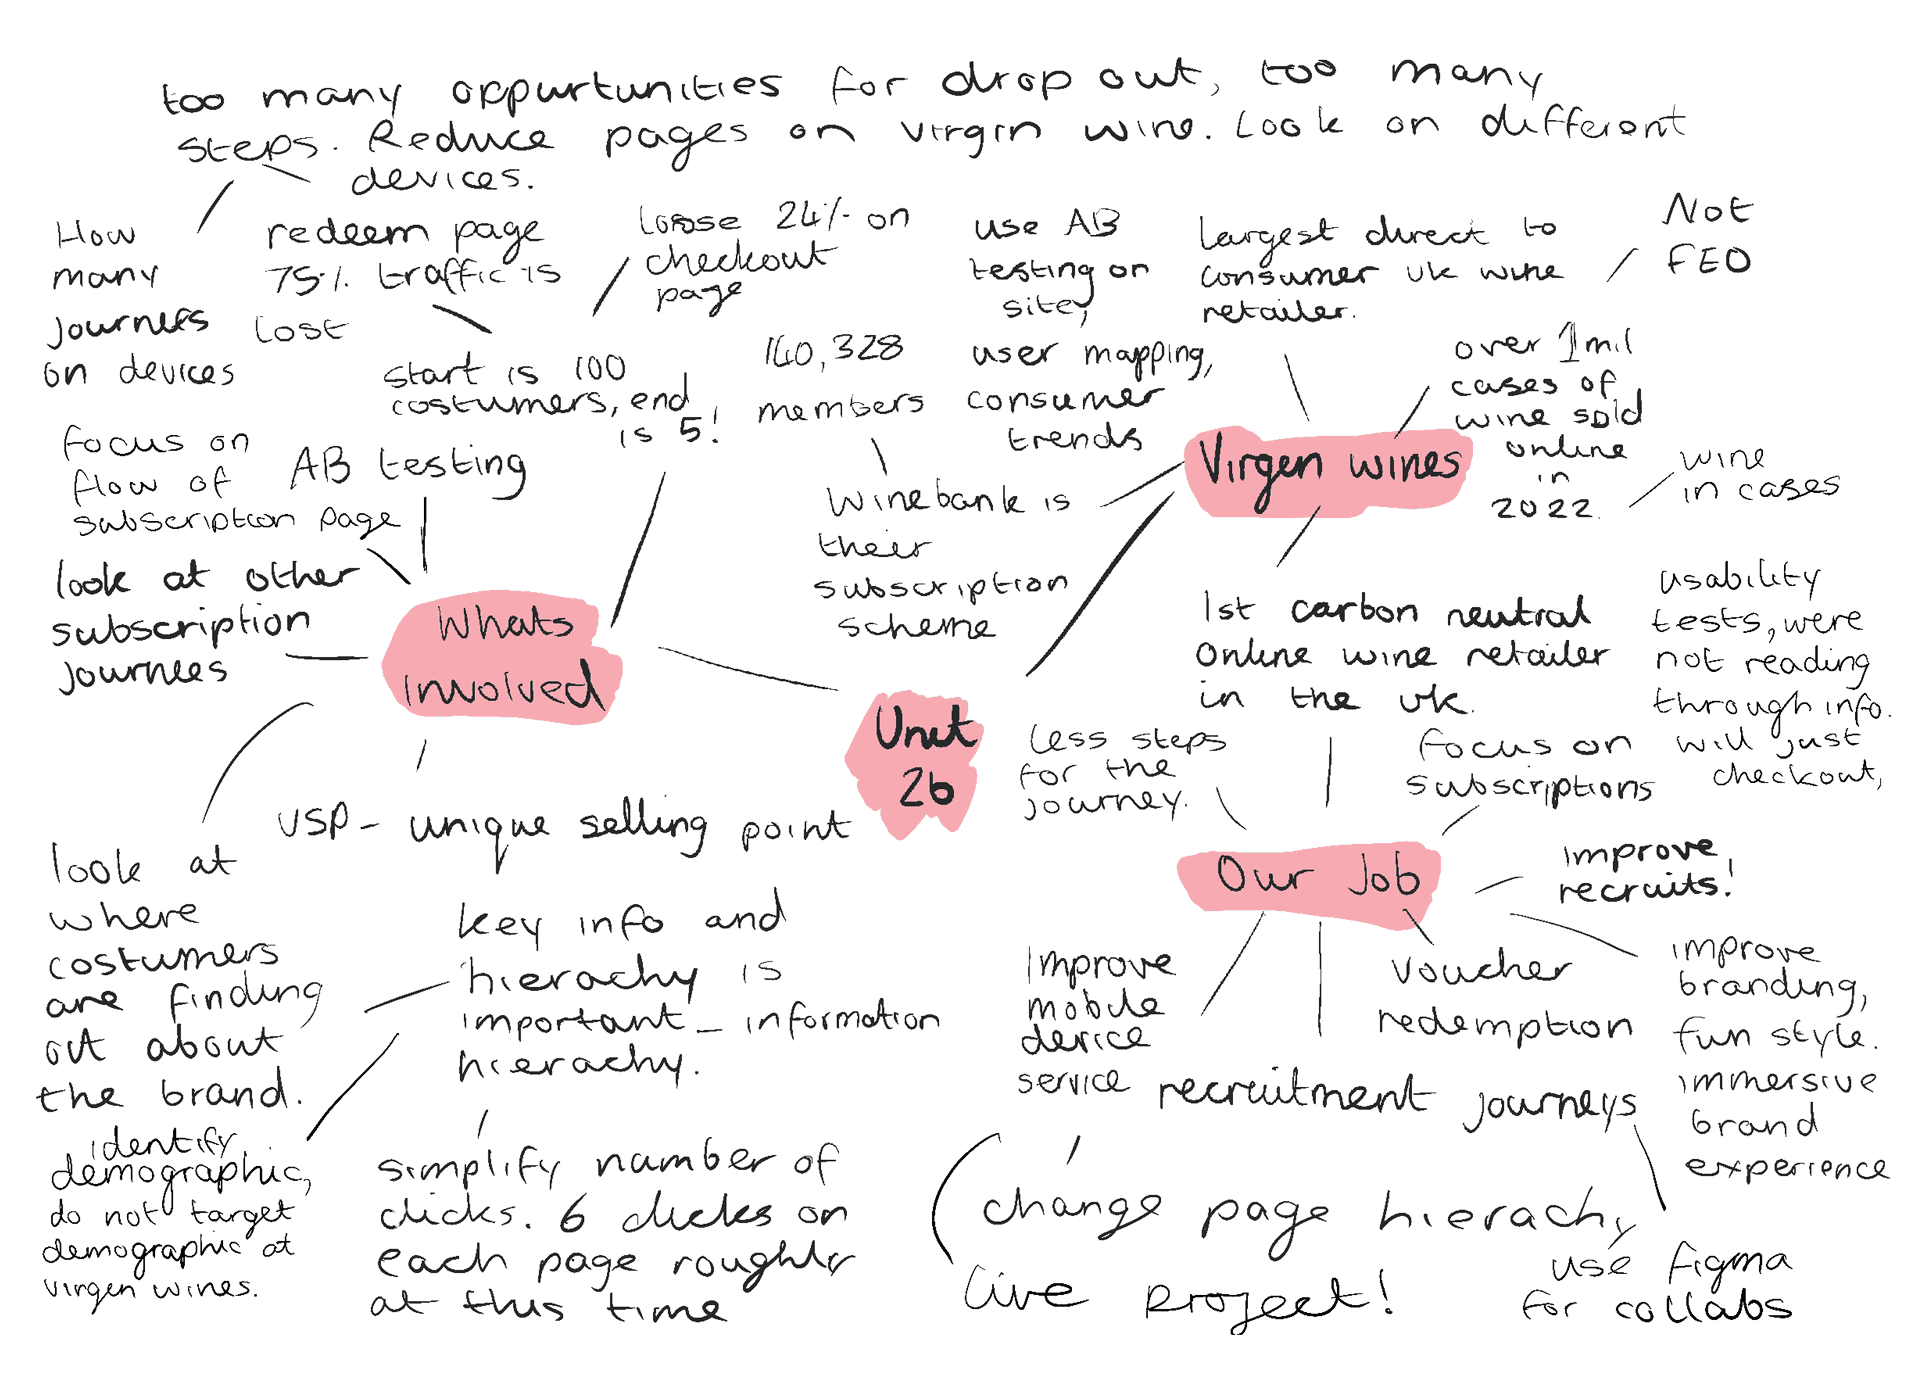 too many oppurtunities for drop out, too many
steps. Reduce pages on virgin wine. Look on different
devices.
How
many
journeys
on devices
redeem page
75% traffic is
lost
loose 24% on
checkout
page
start is 100
costumers, end
is 5!
focus on
flow of
subscription page
AB testing
look at other
subscription
journees
Whats
involved
USP - unique selling point
look at
where
costumers
are finding
out about
the brand.
key info and
hierachy is
important - information
hierachy.
identify
demographic,
do not target
demographic at
virgen wines.
simplify number of
clicks. 6 clicks on
each page roughly
at this time
Unit
2b
use AB
testing on
site,
user mapping,
consumer
trends
140,328
members
Winebank is
their
subscription
scheme
Largest direct to
consumer uk wine
retailer.
Not
FEO
over 1 mil
cases of
wine sold
online
in
2022.
wine
in cases
Virgen wines
1st carbon neutral
online wine retailer
in the uk.
usability
tests, were
not reading
through info.
will just
checkout,
less steps
for the
journey.
focus on
subscriptions
Our Job
improve
recruits!
Improve
mobile
device
service
voucher
redemption
improve
branding,
fun style.
immersive
brand
experience
recruitment journeys
change page hierachy
live project!
use figma
for collabs